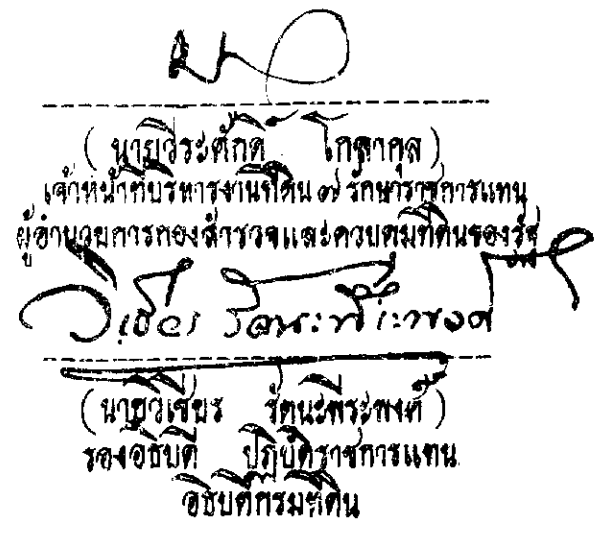 (นายวีระศักดิ์ โกลากุล)
เจ้าหน้าที่บริหารงานที่ดิน ๗ รักษาราชการแทน
ผู้อำนวยการกองสำรวจและควบคุมที่ดินของรัฐ
วิเชียร รัตนะพีระพงศ์
(นายวิเชียร รัตนะพีระพงศ์)
รองอธิบดี ปฏิบัติราชการแทน
อธิบดีกรมที่ดิน